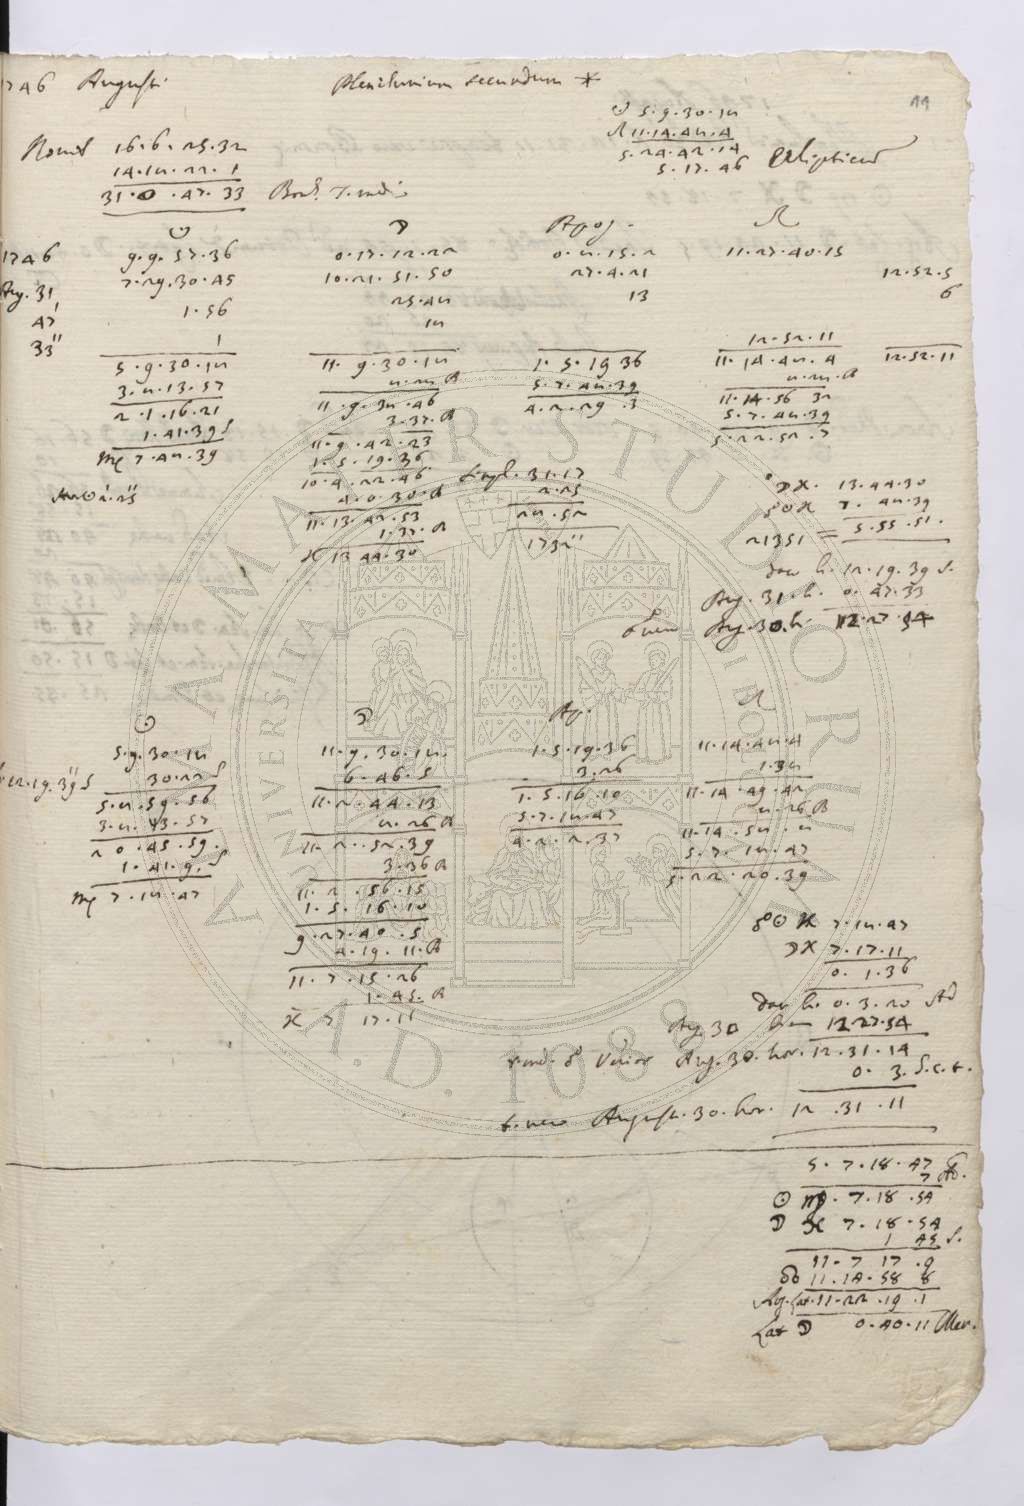 1746 Augusti Plenilunium secundum *
☉ 5.9.30.18
☊ 11.14.48.4
5.24.42.14
5.17.46 Eclipticum
16.6.25.32
14.18.22.1
31.0.47.33
☉ ☽ Apog. ☊
1746 9.9.57.36 0.17.12.22 0.8.15.2 11.27.40.15
Aug. 31 7.29.30.45 10.21.51.50 27.4.21 12.52.5
47' 1.56 25.48 13 6
33'' 1 18 12.52.11
5.9.30.18 11.9.30.18 1.5.19.36 11.14.48.4 12.52.11
3.8.13.57 8.28 A 5.7.48.39 8.28 A
2.1.16.21 11.9.38.46 4.2.29.3 11.14.56.32
1.41.39 S 3.37 A 5.7.48.39
♍ 7.48.39 11.9.42.23 5.22.52.7
1.5.19.36
10.4.22.46 31.17
4.0.30 A 2.25
11.13.42.53 28.52
1.37 A 1732''
♓ 13.44.30
☽ ♓ 13.44.30
☍ ☉ ♓ 7.48.39
21351 = 5.55.51.
h. 12.19.39 S.
Aug. 31. h. 0.47.33
Aug. 30. h. 12.27.54
☉ ☽ Ap. ☊
5.9.30.18 11.9.30.18. 1.5.19.36 11.14.48.4
12.19.39 S 30.22 S 6.46.5 3.26 1.38
5.8.59.56 11.2.44.13 1.5.16.10 11.14.49.42
3.8.13.57 8.26 A 5.7.18.47 8.26 A
2.0.45.59. 11.2.52.39 4.2.2.37 11.14.58.8
1.41.9. S 3.36 A 5.7.18.47
♍ 7.18.47 11.2.56.15 5.22.20.39
1.5.16.10
9.27.40.5
4.19.11. A
11.7.15.26
1.45. A
♓ 7 17.11
☍ ☉ ♓ 7.18.47
☽ ♓ 7.17.11
0.1.36
h. 0.3.20 Ad
Aug. 30 12.27.54
☍ Aug. 30. hor. 12.31.14
0.3. S.
Augusti. 30. hor. 12.31.11
5.7.18.47
7 Ad.
☉ ♍. 7.18.54
☽ ♓ 7.18.54
1 45 S.
11.7 17.9
11.14.58 8
Arg. Lat. 11.22.19.1
Lat ☽ 0.40.11 Mer.